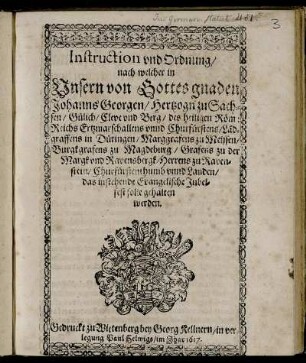 3
Instruction vnd Ordnung/
nach welcher in
Vnsern von Gottes gnaden
Johanns Georgen/ Hertzogn zu Sach-
sen/ Gülich/ Cleve vnd Berg/ des heiligen Röm:
Reichs Ertzmarschallens vnnd Churfürstens/ Läd-
graffens in Düringen/ Marggrafens zu Meissen/
Burggrafens zu Magdeburg/ Grafens zu der
Marck vnd Ravensbergk/ Herrens zu Raven-
stein/ Churfürstenthumb vnnd Landen/
das instehende Evangelische Jubel-
fest solle gehalten
werden.
Gedruckt zu Wittenberg bey Georg Kellnern/ in ver-
legung Paul Helwigs/ im Jhar 1617.